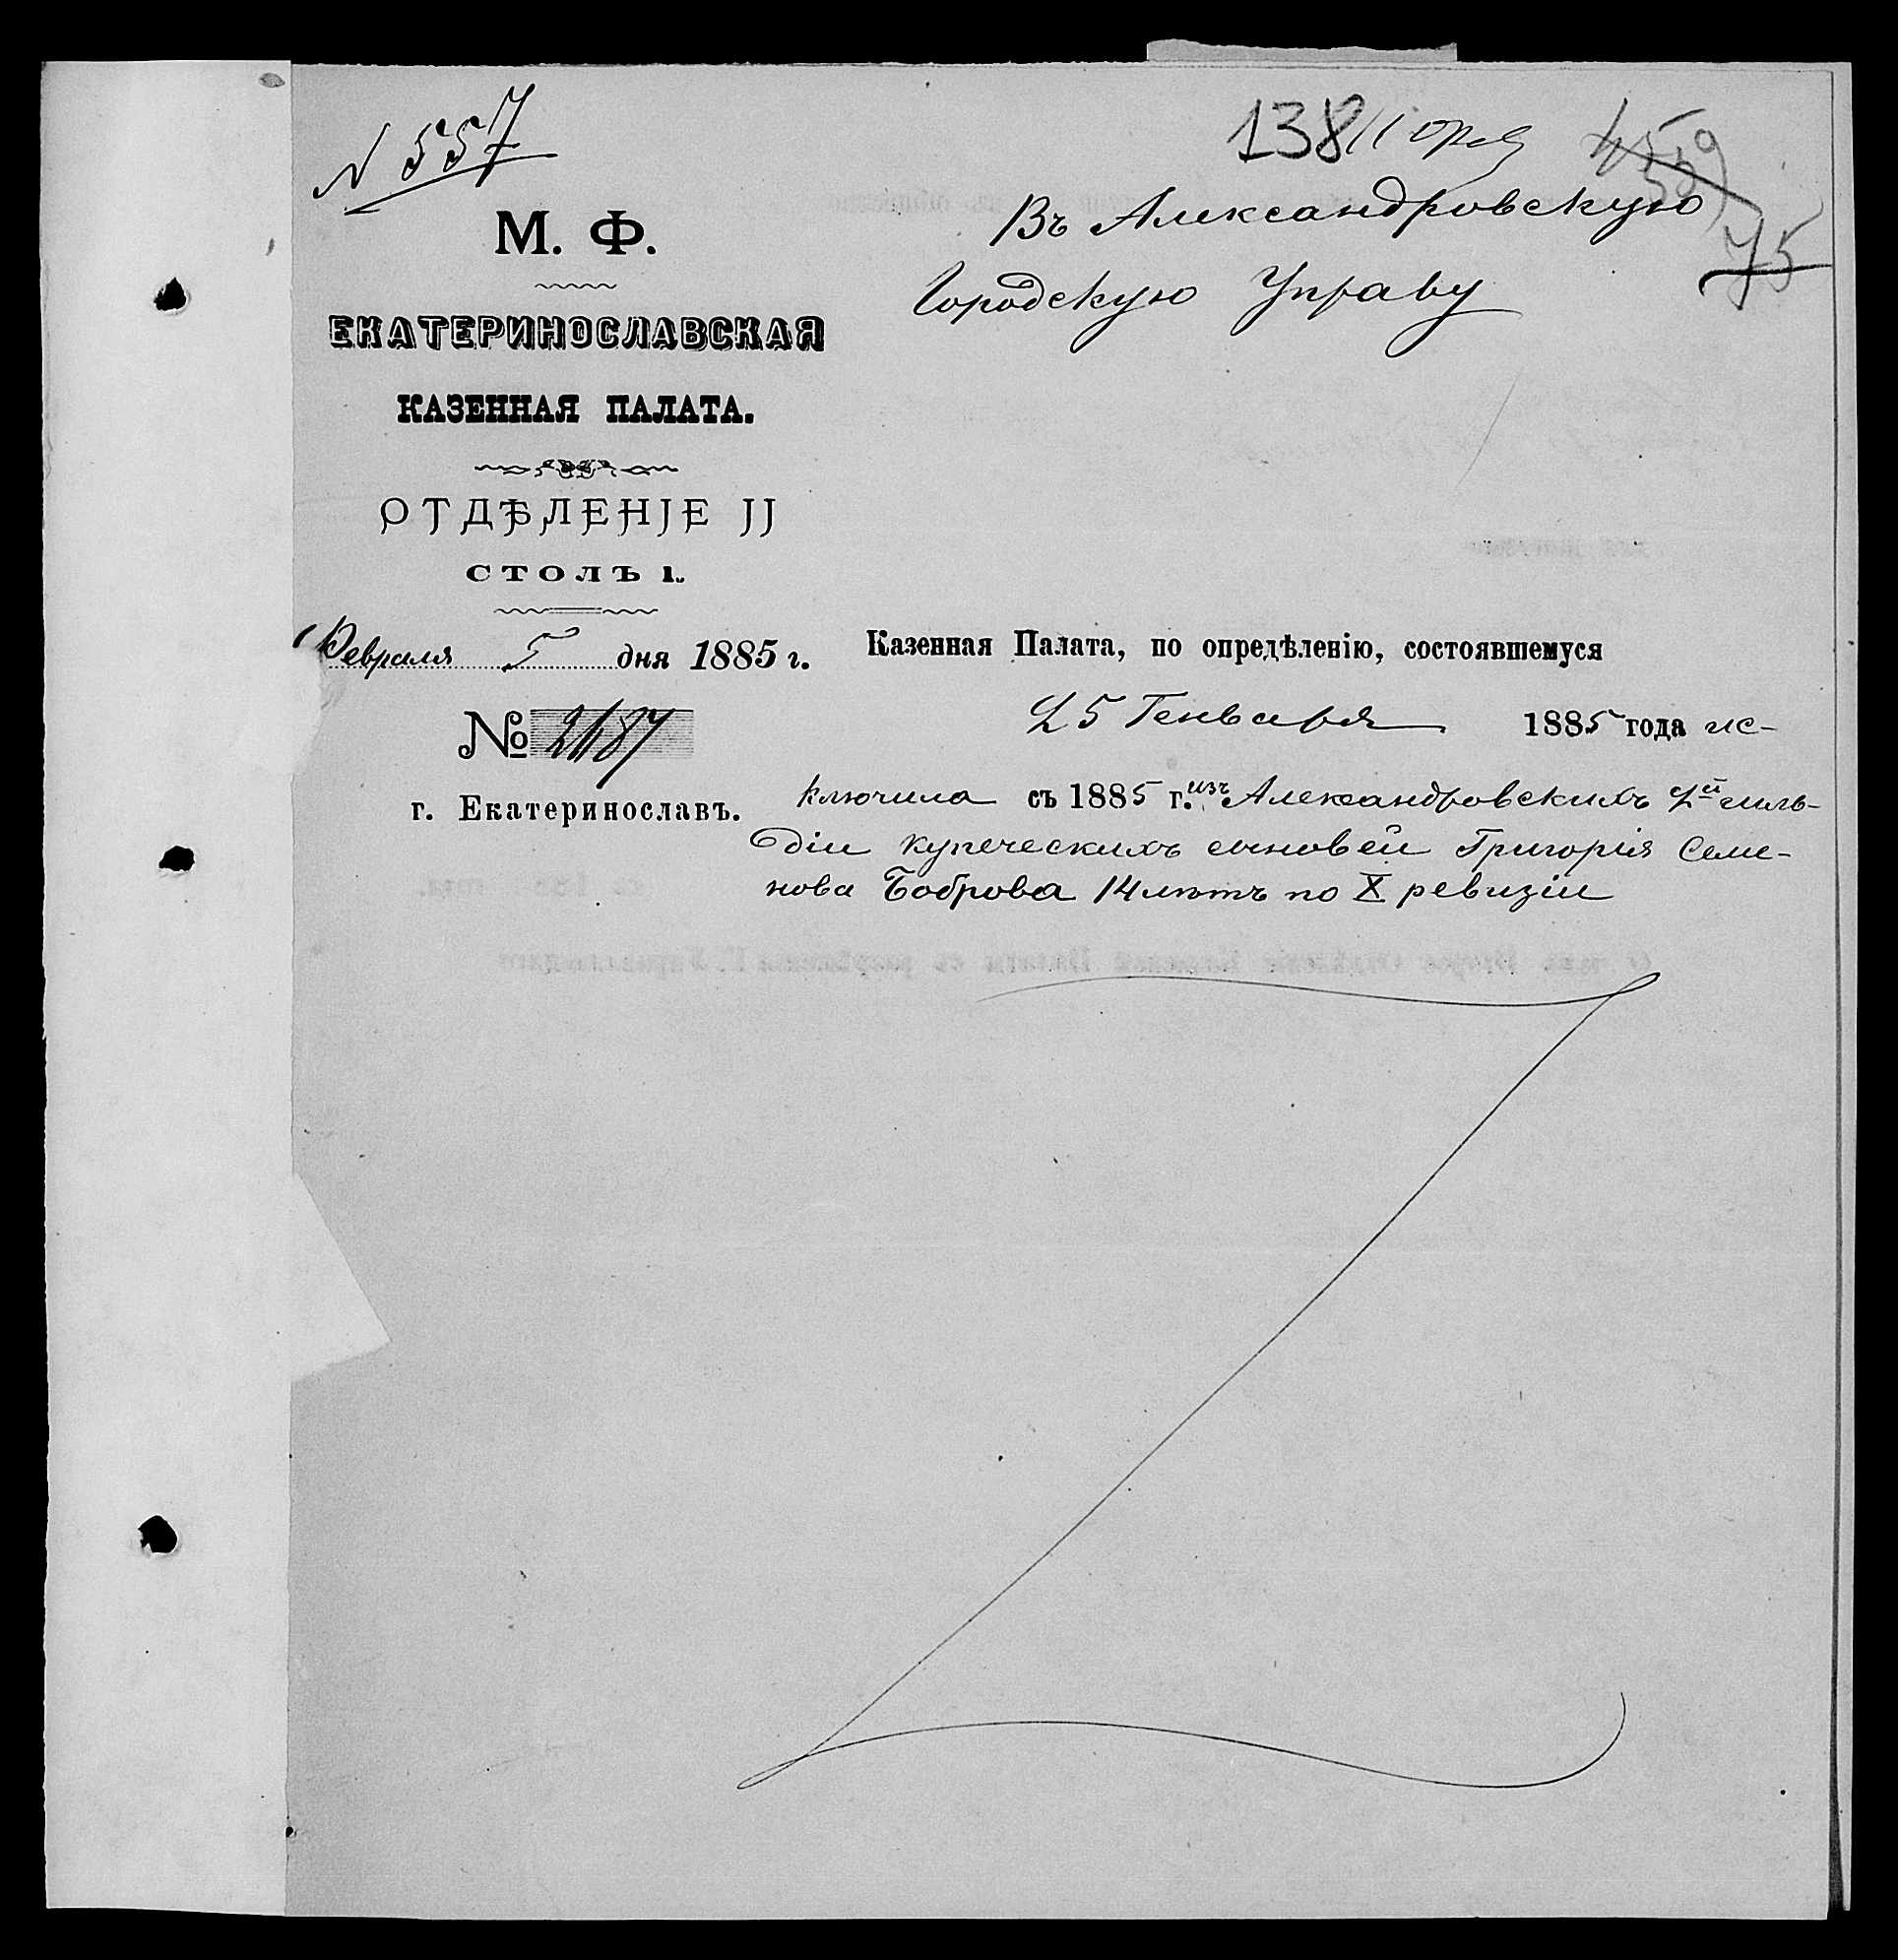 N 557
138
75
М. Ф.
ЕКАТЕРИНОСЛАВСКАЯ
КАЗЕННАЯ ПАЛАТА.
ОТДѢЛЕНІЕ II
СТОЛЪ 1.
Февраля 5 дня 1885 г.
№ 2187
г. Екатеринославъ.
Въ Александровскую
Городскую Управу
Казенная Палата, по опредѣленію, состоявшемуся
25 Генваря 1885 года ис-
ключила съ 1885 г. изъ Александровскихъ 2й гиль-
діи купеческихъ сыновей Григорія Семе-
нова Боброва 14 лѣтъ по X ревизіи